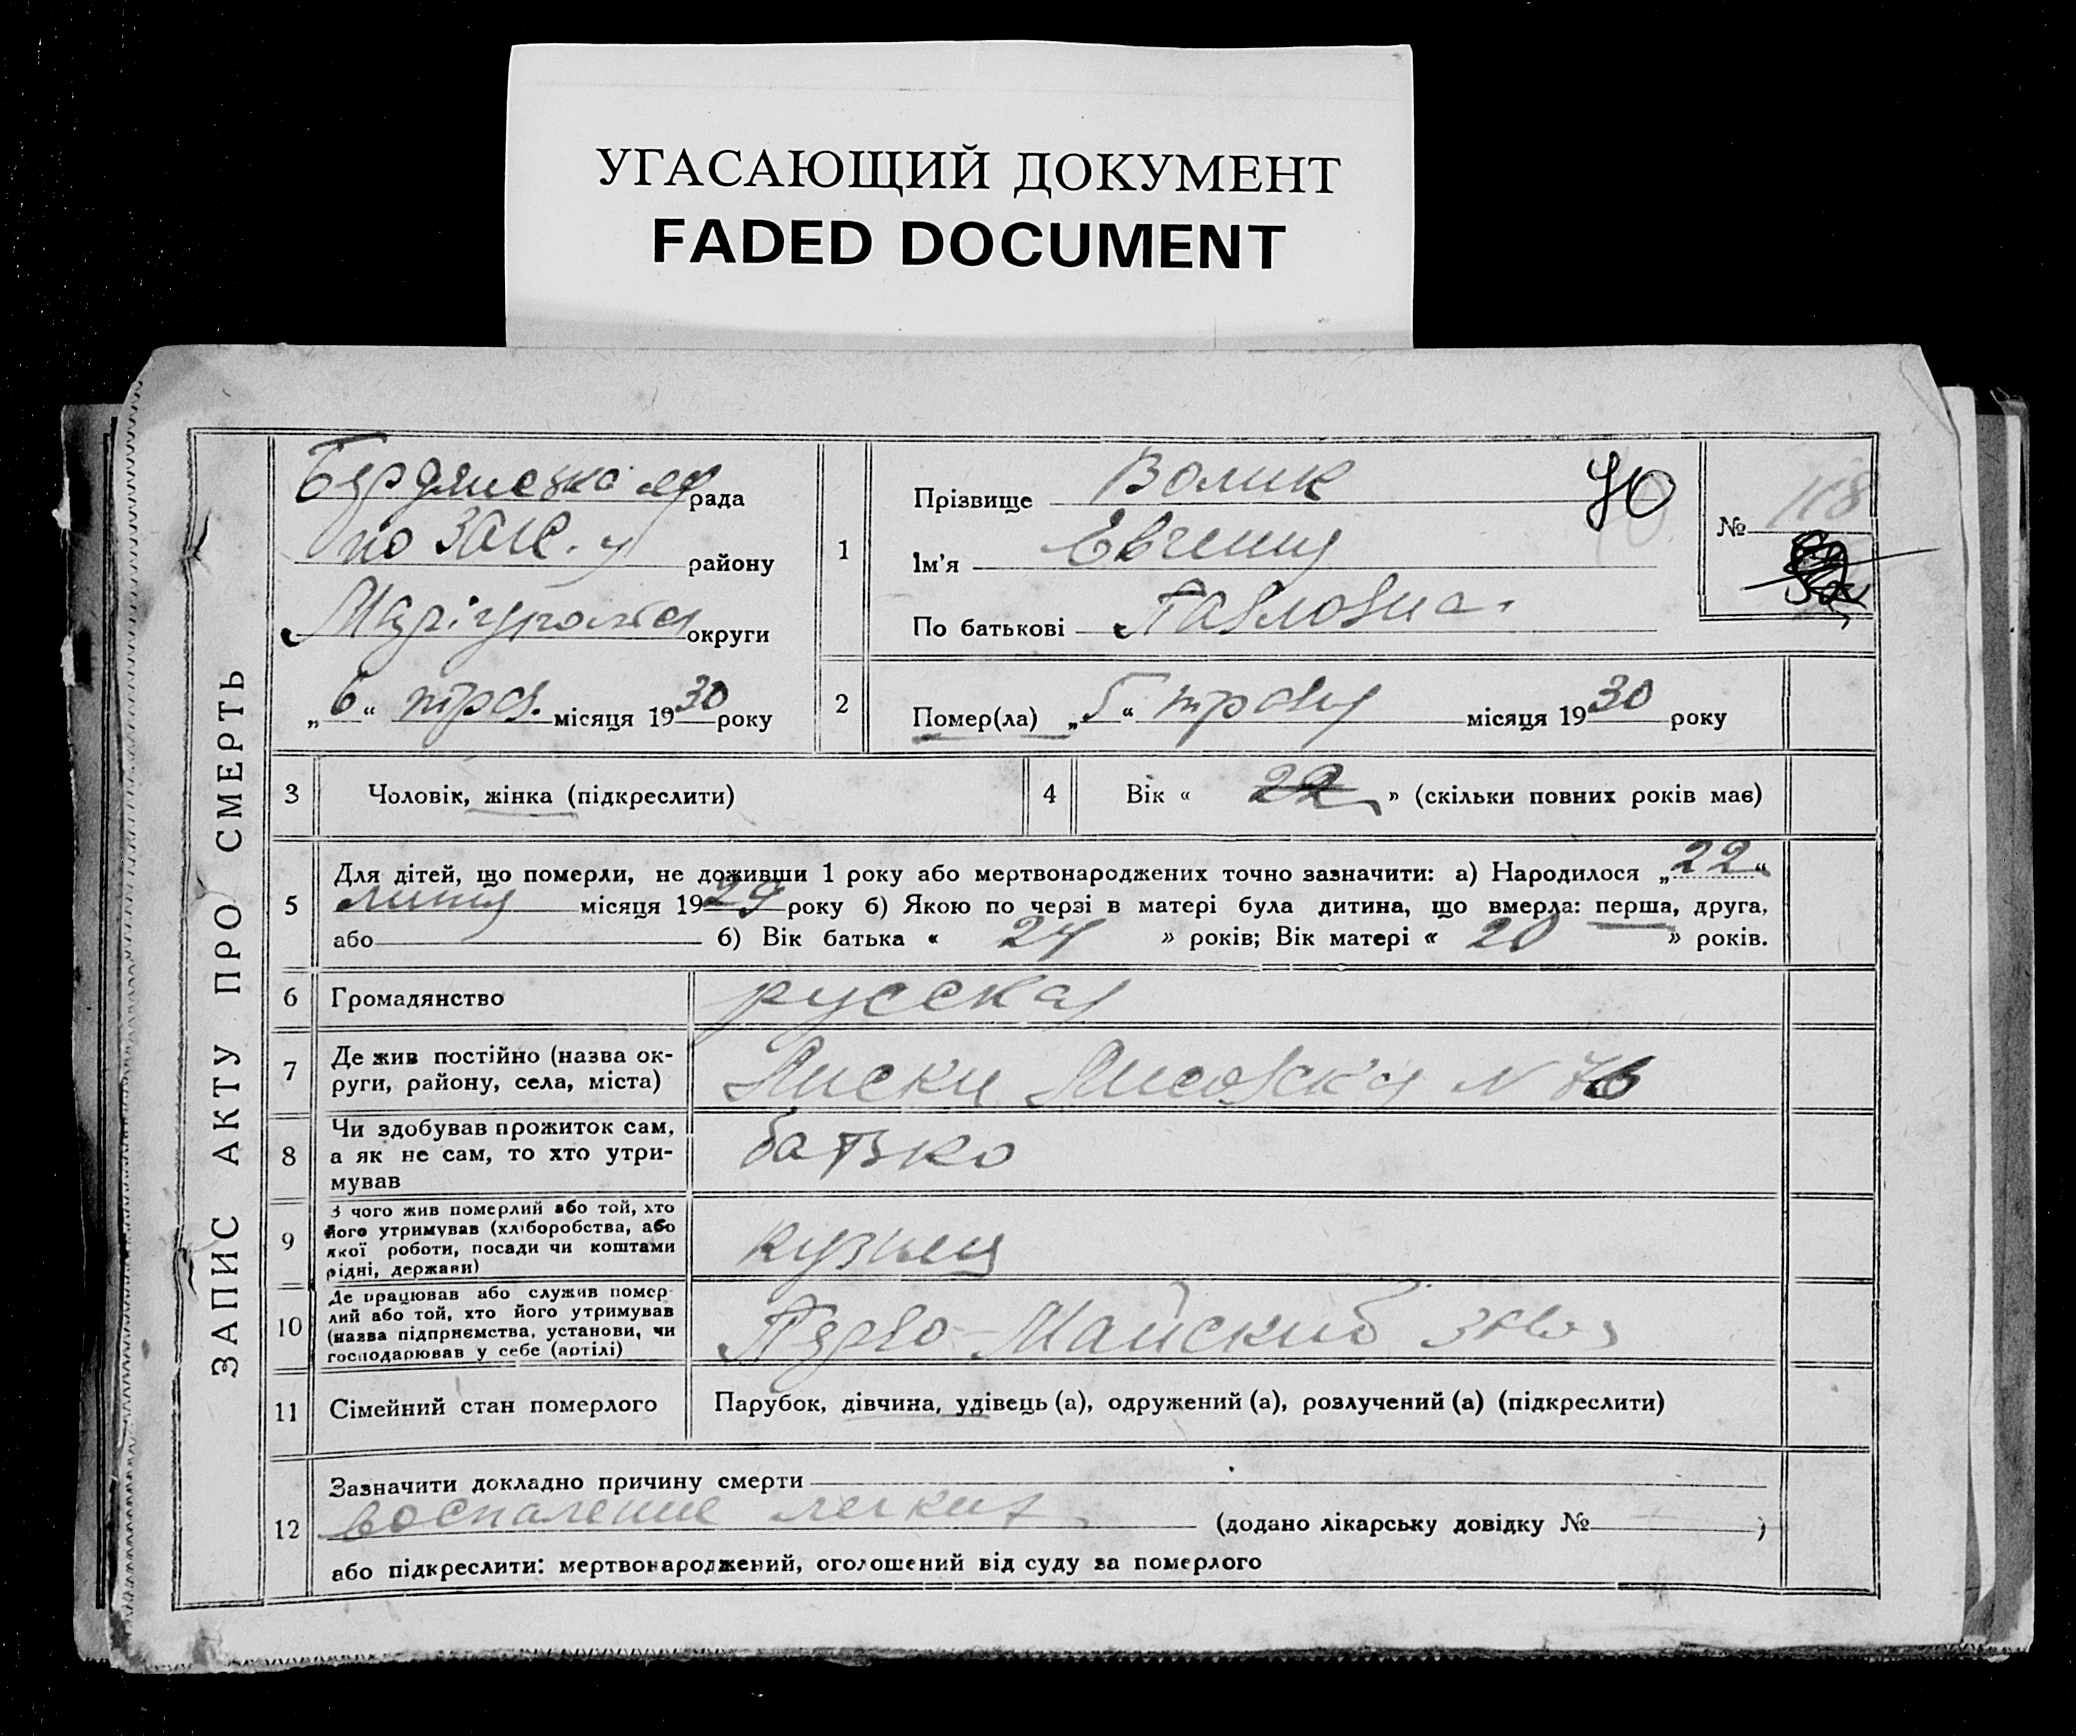 УГАСАЮЩИЙ ДОКУМЕНТ
FADED DOCUMENT
ЗАПИС АКТУ ПРО СМЕРТЬ
Бердянська рада
по району
Маріупольс округи
„6“ трав. місяця 1930 року
1
Прізвище Волик
Ім'я Евгения
По батькові Павловна
40
№ 118
2
Помер(ла) „5“ травня місяця 1930 року
3 Чоловік, жінка (підкреслити)
4 Вік « 22 » (скільки повних років має)
5 Для дітей, що померли, не доживши 1 року або мертвонароджених точно зазначити: а) Народилося „22“
липня місяця 1929 року б) Якою по черзі в матері була дитина, що вмерла: перша, друга,
або б) Вік батька « 24 » років; Вік матері « 20 » років.
6 Громадянство русская
7 Де жив постійно (назва ок-
руги, району, села, міста) Лиски Лисовская N 76
8 Чи здобував прожиток сам,
а як не сам, то хто утри-
мував батько
9 З чого жив померлий або той, хто
його утримував (хліборобства, або
якої роботи, посади чи коштами
рідні, держави) кузнец
10 Де працював або служив помер-
лий або той, хто його утримував
(назва підприємства, установи, чи
господарював у себе (артілі) Перво-Майский завод
11 Сімейний стан померлого Парубок, дівчина, удівець (а), одружений (а), розлучений (а) (підкреслити)
12 Зазначити докладно причину смерти
воспаление легких (додано лікарську довідку № )
або підкреслити: мертвонароджений, оголошений від суду за померлого